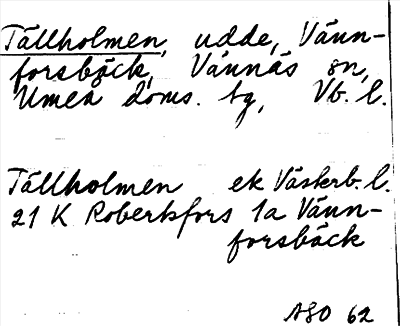 Tällholmen, udde, Vänn-
forsbäck, Vännäs sn,
Umeå doms. tg, Vb. l.
Tällholmen ek Västerb. l.
21 K Robertsfors 1a Vänn-
forsbäck
ASO 62